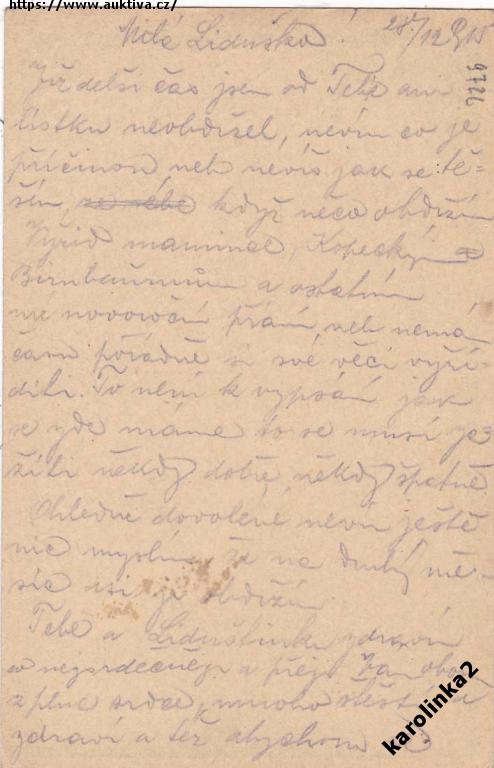 https://www.auktiva.cz/
Milá Liduško! 28/12 915
9726
Již delší čas jsem od Tebe ani
lístku neobdržel, nevím co je
příčinou neb nevíš jak se tě-
ším, když něco obdržím
Vyřiď mamince, Kopeckým
Birnbaumům a ostatním
mé novoroční přání neb nemám
času pořádně si své věci vyří-
diti. To není k vypsání jak
se zde máme to se musí
žíti někdy dobře, někdy špatně
Ohledně dovolené nevím ještě
nic myslím že na druhý mě-
síc asi ji obdržím
Tebe a Liduštinku zdraví
co nejsrdečněji a přeje Vám
z plna srdce, mnoho štěstí a
zdraví a též abychom
karolinka2